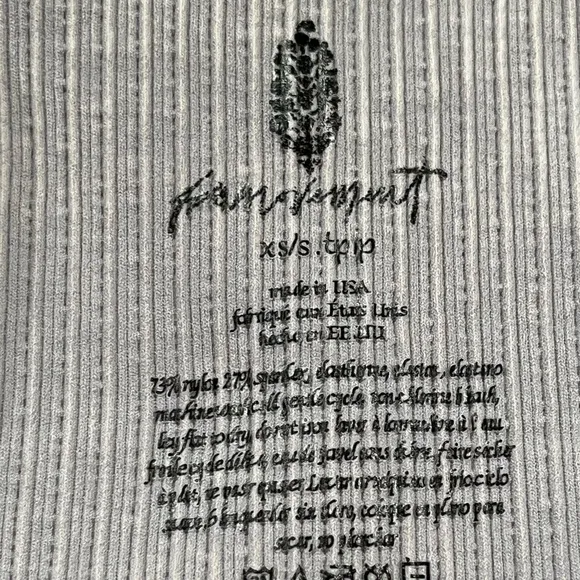 fp movement
xs/s . tp/p
made in USA
fabriqué aux États Unis
hecho en EE.UU
73% nylon 27% spandex, elasthanne, elastan, elastino
machine wash cold gentle cycle, non-chlorine bleach,
lay flat to dry, do not iron laver à la machine à l'eau
froide cycle délicat, eau de javel sans chlore, faire sécher
à plat, ne pas repasser Lavar a máquina en frío ciclo
suave, blanqueador sin cloro, coloque en plano para
secar, no planchar